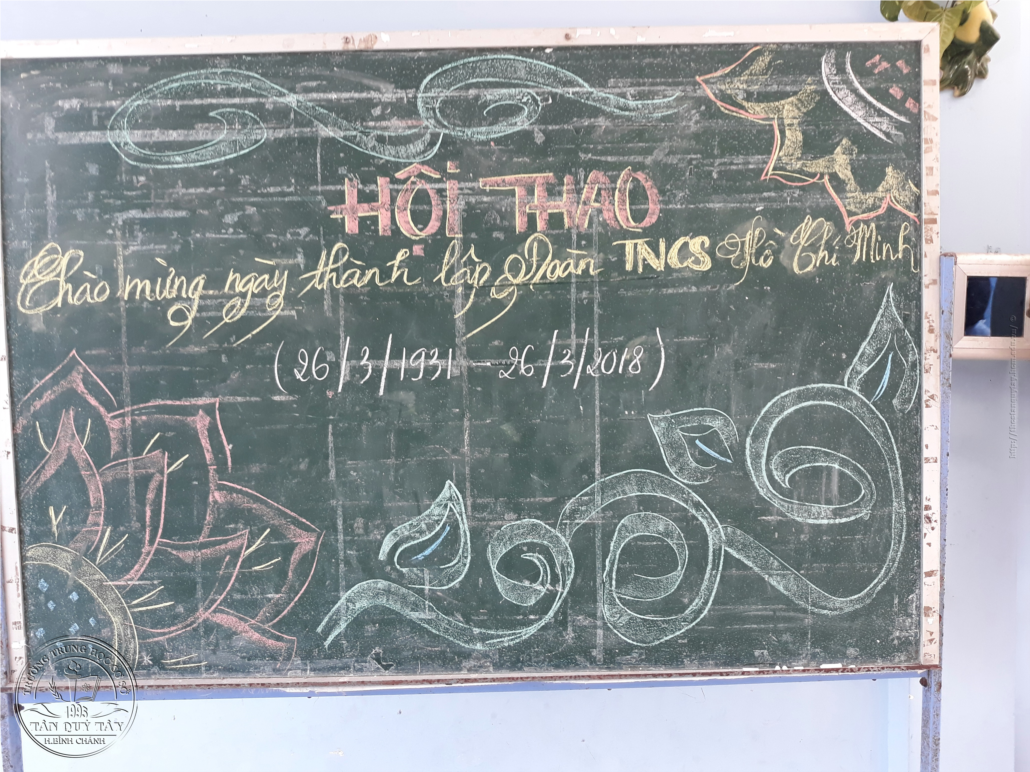 HỘI THAO
Chào mừng ngày thành lập Đoàn TNCS Hồ Chí Minh
(26/3/1931 - 26/3/2018)
TRƯỜNG TRUNG HỌC CƠ SỞ
1996
TÂN QUÝ TÂY
H.BÌNH CHÁNH